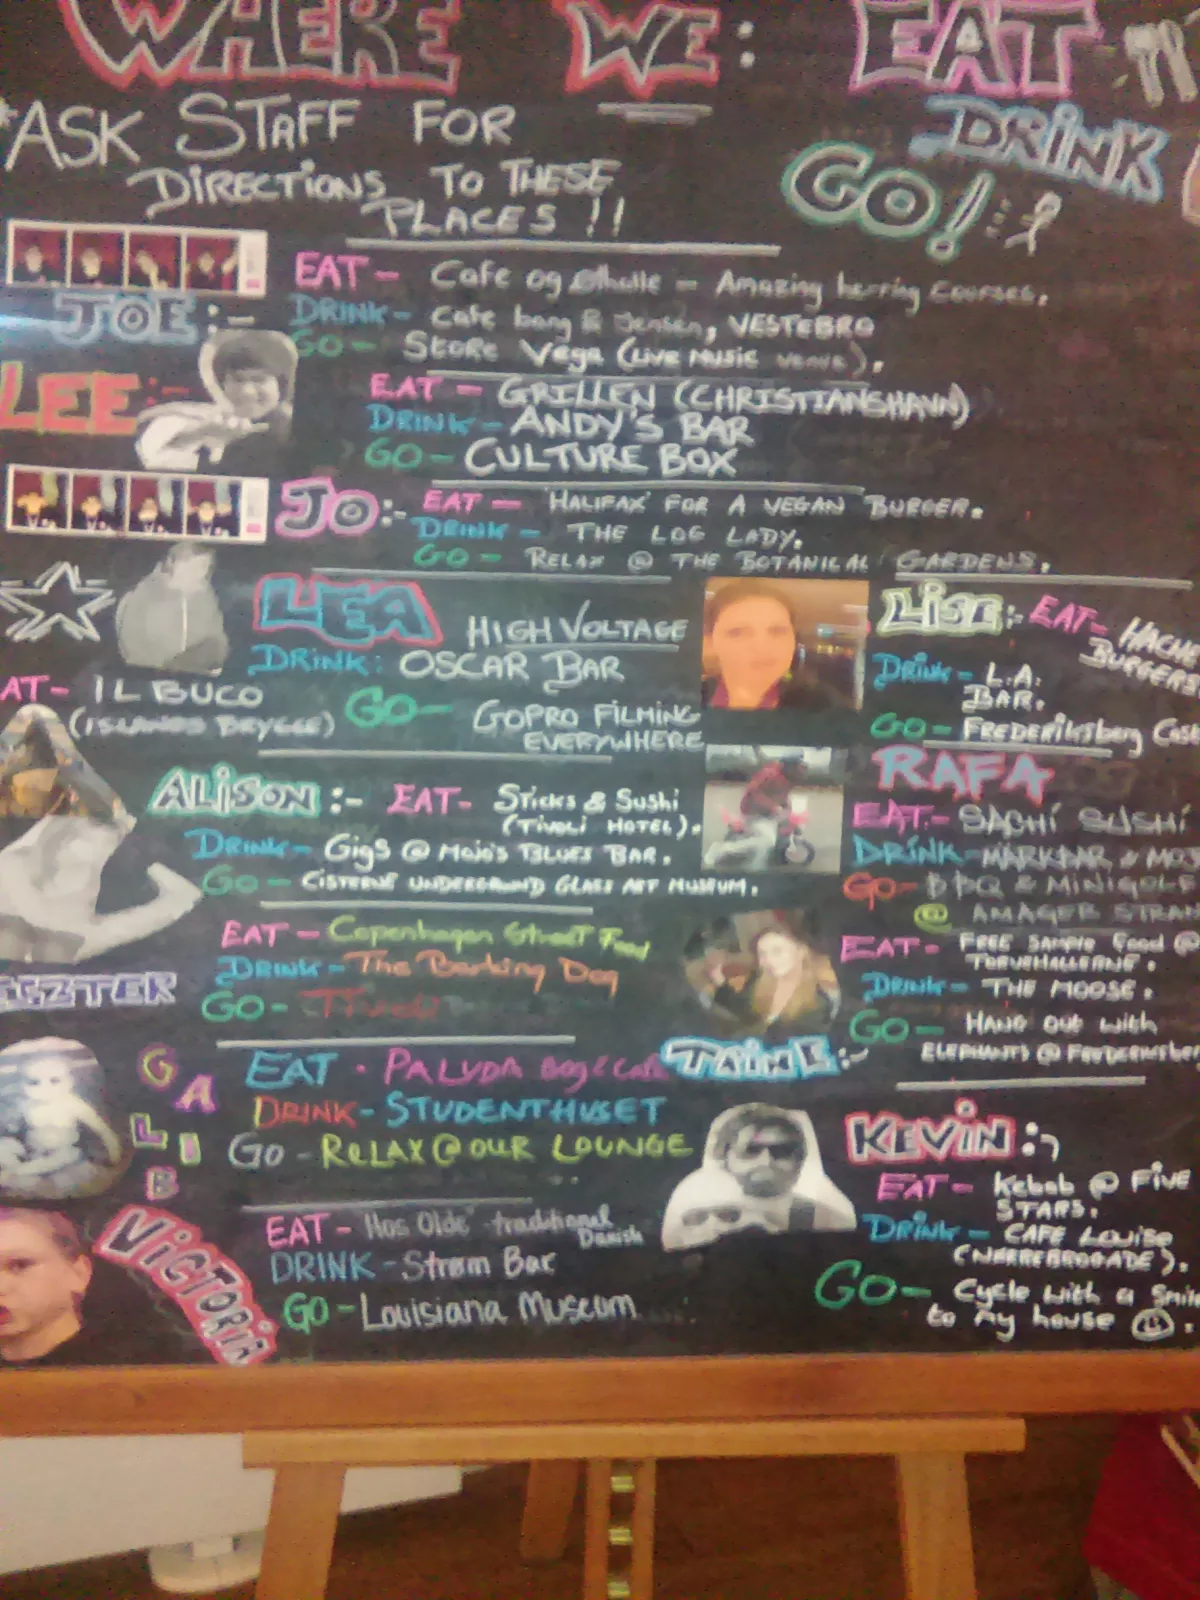 WHERE WE: EAT
DRINK
GO!
*ASK STAFF FOR
DIRECTIONS TO THESE
PLACES !!
JOE:-
EAT - Cafe og Ølhalle - Amazing herring courses.
DRINK - Cafe bang & Jensen, VESTEBRO
GO - Store Vega (Live Music venue).
LEE:-
EAT - GRILLEN (CHRISTIANSHAVN)
DRINK - ANDY'S BAR
GO - CULTURE BOX
JO:- EAT - 'HALIFAX' FOR A VEGAN BURGER.
DRINK - THE LOG LADY.
GO - RELAX @ THE BOTANICAL GARDENS.
LEA HIGH VOLTAGE
DRINK: OSCAR BAR
EAT - IL BUCO
(ISLANDS BRYGGE)
GO - GOPRO FILMING
EVERYWHERE
LISE:- EAT- HACHE
BURGERS
DRINK - L.A.
BAR.
GO - FREDERiksberg
ALISON :- EAT- Sticks & Sushi
(TIVOLI HOTEL).
DRINK - Gigs @ Mojo's BLUES BAR.
GO - CISTERNE UNDERGROUND GLASS ART MUSEUM.
RAFA
EAT:- SUSHI
DRINK-
GO- BBQ & MINIGOLF
@ AMAGER STRAN
EAT - Copenhagen Street Food
DRINK - The Barking Dog
GO -
EAT - FREE Sample Food @
TORVEHALLERNE.
DRINK - THE MOOSE.
GO - HANG out with
ELEPHANTS @
TRINE:-
GALIB
EAT - PALUDA
DRINK - STUDENTHUSET
GO - RELAX @ OUR LOUNGE
KEVIN:-
EAT - Kebab @ FIVE
STARS.
DRINK - CAFE Louise
(NØRREBROGADE).
GO - Cycle with a Smile
to my house
VICTORIA
EAT - Hos Olde traditional
Danish
DRINK - Strøm Bar
GO - Louisiana Museum